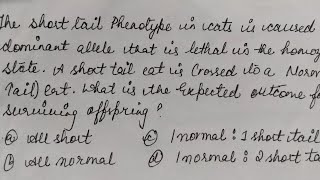 The short tail Phenotype in cats is caused
dominant allele that is lethal in the homoz
state. A short tail cat is Crossed to a Norm
Tail) Cat. What is the Expected outcome fo
Surviving offspring?
(a) All short (c) 1 normal : 1 short tail
(b) All normal (d) 1 normal : 2 short ta